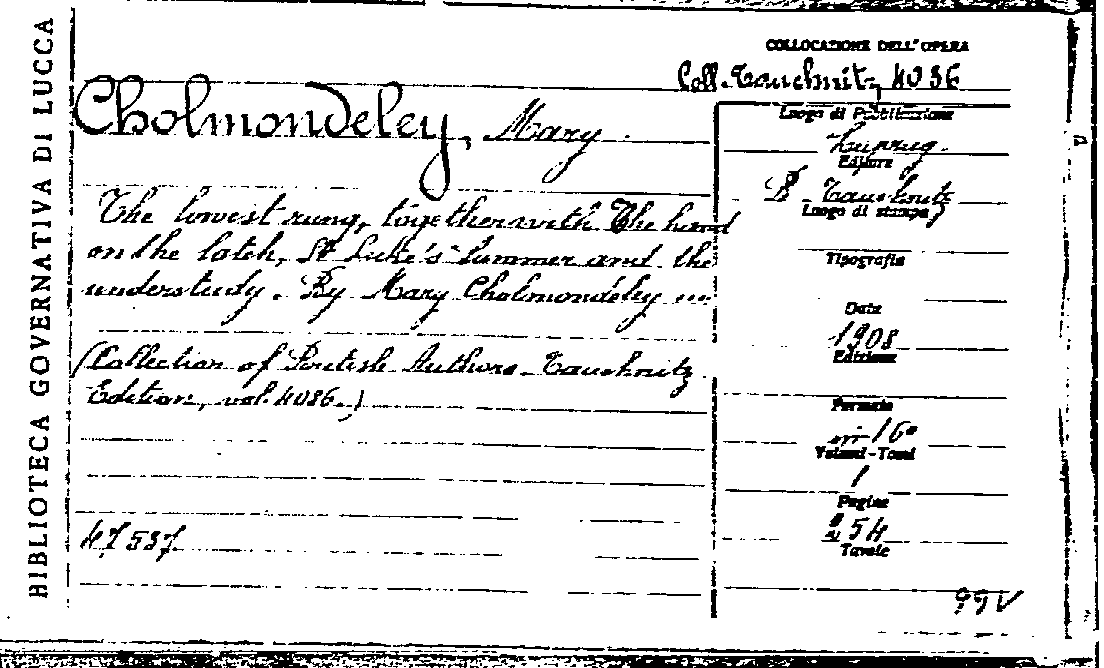 BIBLIOTECA GOVERNATIVA DI LUCCA
COLLOCAZIONE DELL'OPERA
Coll. Tauchnitz, 4086
Cholmondeley, Mary.
The lowest rung, together with The hand
on the latch, St Luke's summer and the
understudy. By Mary Cholmondeley ...
(Collection of British Authors. Tauchnitz
Edition, vol. 4086.)
47537
Luogo di Pubblicazione
Leipzig.
Editore
B. Tauchnitz
Luogo di stampa
Tipografia
Data
1908
Edizione
Formato
in-16º
Volumi-Tomi
1
Pagine
254
Tavole
99V